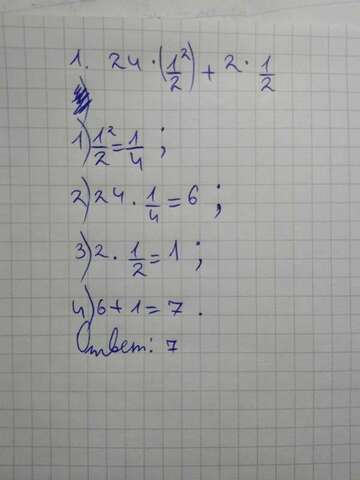 1. 24 · (1²/2) + 2 · 1/2
1) 1²/2 = 1/4 ;
2) 24 · 1/4 = 6 ;
3) 2 · 1/2 = 1 ;
4) 6 + 1 = 7 .
Ответ: 7